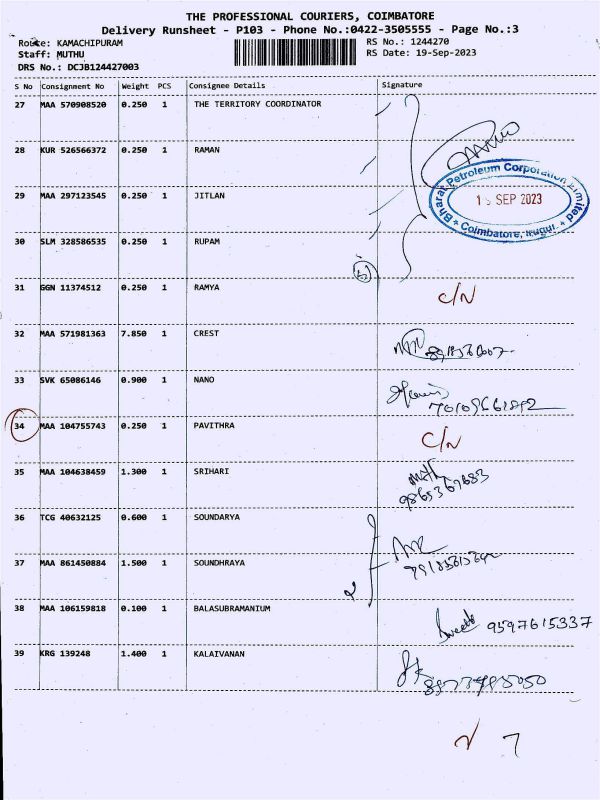 THE PROFESSIONAL COURIERS, COIMBATORE
Delivery Runsheet - P103 - Phone No.:0422-3505555 - Page No.:3
Route: KAMACHIPURAM RS No.: 1244270
Staff: MUTHU RS Date: 19-Sep-2023
DRS No.: DCJB124427003
S No Consignment No Weight PCS Consignee Details Signature
27 MAA 570908520 0.250 1 THE TERRITORY COORDINATOR
28 KUR 526566372 0.250 1 RAMAN
Bharat Petroleum Corporation Limited
29 MAA 297123545 0.250 1 JITLAN
SEP 2023
30 SLM 328586535 0.250 1 RUPAM
Coimbatore, Irugur.
31 GGN 11374512 0.250 1 RAMYA C/N
32 MAA 571981363 7.850 1 CREST
33 SVK 65086146 0.900 1 NANO
34 MAA 104755743 0.250 1 PAVITHRA C/N
35 MAA 104638459 1.300 1 SRIHARI
36 TCG 40632125 0.600 1 SOUNDARYA
37 MAA 861450884 1.500 1 SOUNDHRAYA
38 MAA 106159818 0.100 1 BALASUBRAMANIUM 9597615337
39 KRG 139248 1.400 1 KALAIVANAN
7